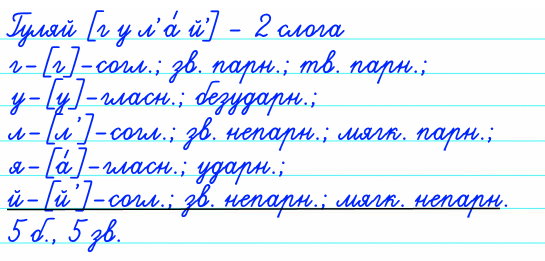 Гуляй [г у л’ а́ й’] – 2 слога
г – [г] – согл.; зв. парн.; тв. парн.;
у – [у] – гласн.; безударн.;
л – [л’] – согл.; зв. непарн.; мягк. парн.;
я – [а́] – гласн.; ударн.;
й – [й’] – согл.; зв. непарн.; мягк. непарн.
5 б., 5 зв.